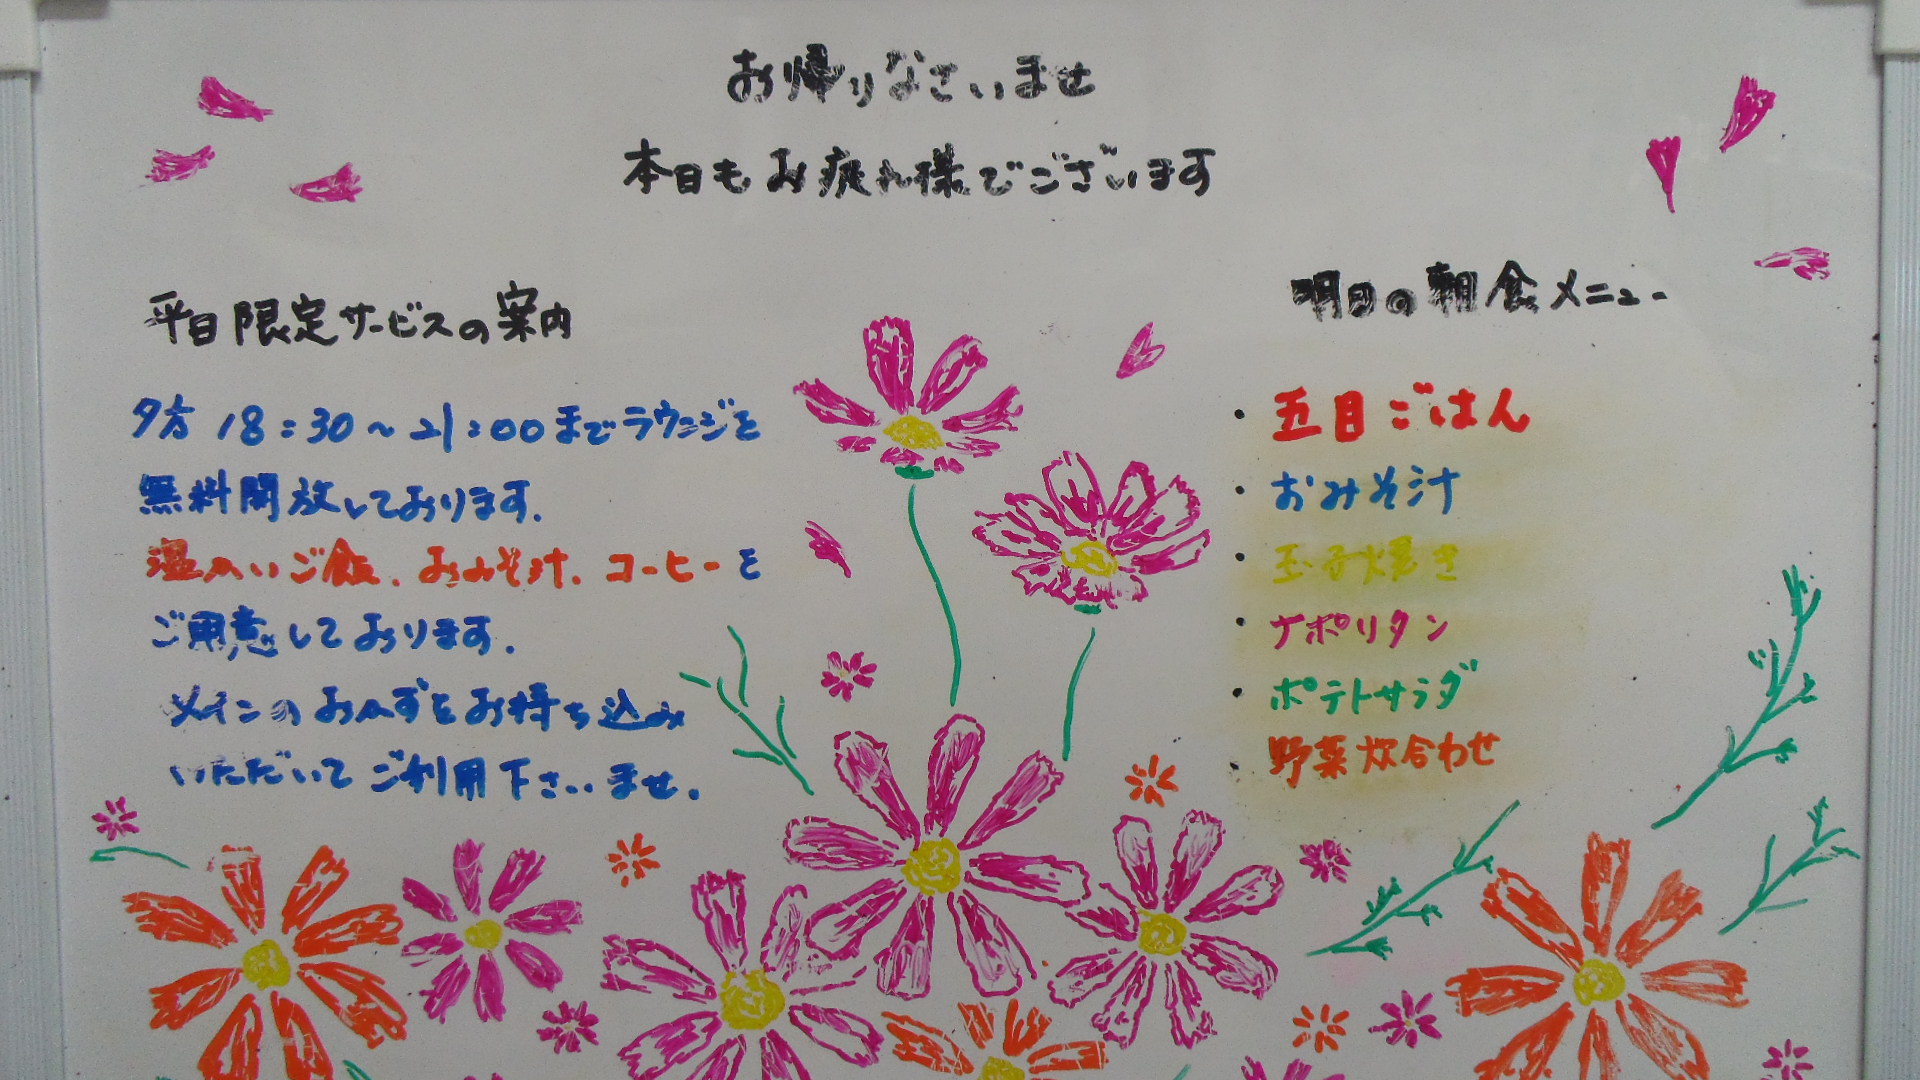 お帰りなさいませ
本日もお疲れ様でございます
平日限定サービスの案内
夕方 18:30～21:00までラウンジを
無料開放しております.
温かいご飯、おみそ汁、コーヒーを
ご用意しております.
メインのおかずをお持ち込み
いただいてご利用下さいませ.
明日の朝食メニュー
・五目ごはん
・おみそ汁
・玉子焼き
・ナポリタン
・ポテトサラダ
・野菜炊合わせ